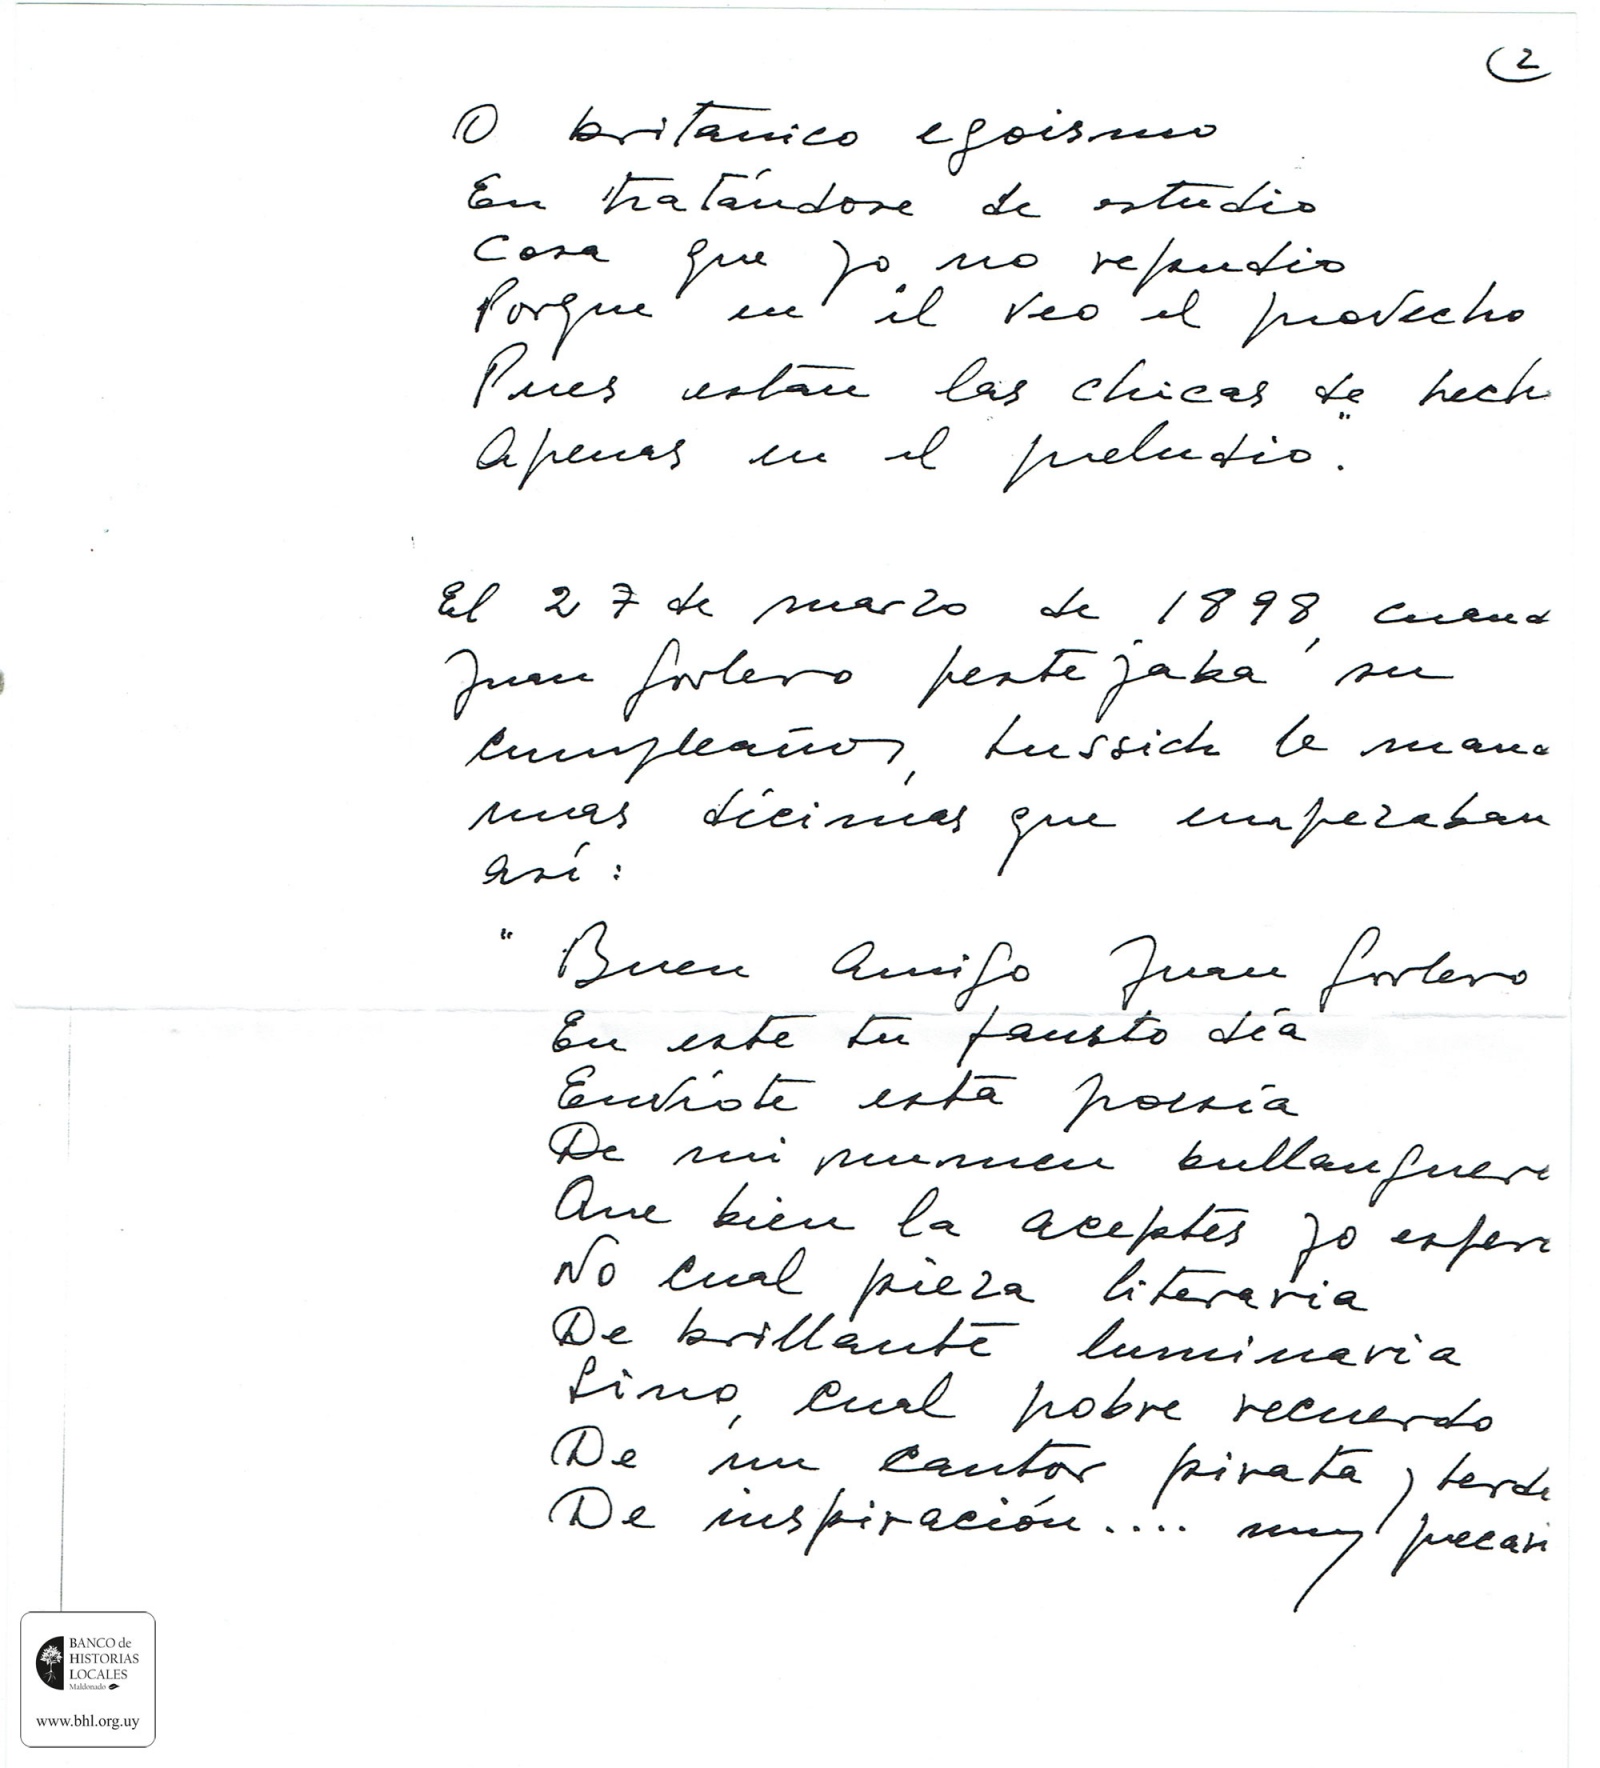 2
O britanico egoismo
En tratándose de estudio
Cosa que yo no repudio
Porque en él veo el provecho
Pues estan las chicas de hech
Apenas en el preludio".
El 27 de marzo de 1898, cuand
Juan Gorlero festejaba su
cumpleaños, Lussich le mand
unas décimas que empezaban
así:
" Buen amigo Juan Gorlero
En este tu fausto día
Envíote esta poesía
De mi numen bullanguer
Que bien la aceptes yo esper
No cual pieza literaria
De brillante luminaria
Sino, cual pobre recuerdo
De un cantor pirata y lerd
De inspiración.... muy precari
BANCO de
HISTORIAS
LOCALES
Maldonado
www.bhl.org.uy